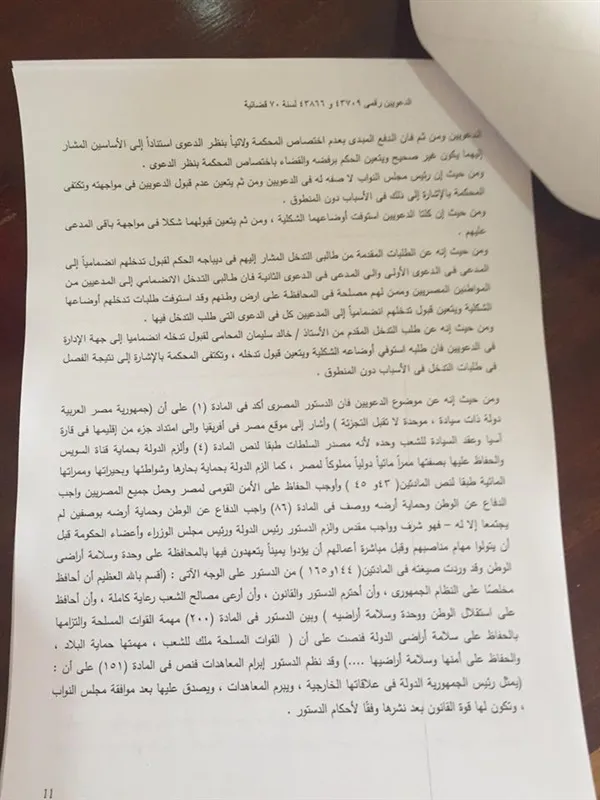 الدعويين رقمى ٤٣٧٠٩ و ٤٣٨٦٦ لسنة ٧٠ قضائية
الدعويين ومن ثم فان الدفع المبدى بعدم اختصاص المحكمة ولائياً بنظر الدعوى استناداً إلى الأساسين المشار
إليهما يكون غير صحيح ويتعين الحكم برفضه والقضاء باختصاص المحكمة بنظر الدعوى .
ومن حيث إن رئيس مجلس النواب لا صفه له فى الدعويين ومن ثم يتعين عدم قبول الدعويين فى مواجهته وتكتفى
المحكمة بالإشارة إلى ذلك فى الأسباب دون المنطوق .
ومن حيث إن كلتا الدعويين استوفت أوضاعهما الشكلية ، ومن ثم يتعين قبولهما شكلا فى مواجهة باقى المدعى
عليهم .
ومن حيث إنه عن الطلبات المقدمة من طالبى التدخل المشار إليهم فى ديباجه الحكم لقبول تدخلهم انضمامياً إلى
المدعى فى الدعوى الأولى والى المدعى فى الدعوى الثانية فان طالبى التدخل الانضمامي إلى المدعيين من
المواطنين المصريين وممن لهم مصلحة فى المحافظة على ارض وطنهم وقد استوفت طلبات تدخلهم أوضاعها
الشكلية ويتعين قبول تدخلهم انضمامياً إلى المدعيين كل فى الدعوى التى طلب التدخل فيها .
ومن حيث إنه عن طلب التدخل المقدم من الأستاذ / خالد سليمان المحامى لقبول تدخله انضماميا إلى جهة الإدارة
فى الدعويين فان طلبه استوفي أوضاعه الشكلية ويتعين قبول تدخله ، وتكتفى المحكمة بالإشارة إلى نتيجة الفصل
فى طلبات التدخل فى الأسباب دون المنطوق .
ومن حيث إنه عن موضوع الدعويين فان الدستور المصرى أكد فى المادة (١) على أن (جمهورية مصر العربية
دولة ذات سيادة ، موحدة لا تقبل التجزئة ) وأشار إلى موقع مصر فى أفريقيا والى امتداد جزء من إقليمها فى قارة
آسيا وعقد السيادة للشعب وحده لأنه مصدر السلطات طبقا لنص المادة (٤) وألزم الدولة بحماية قناة السويس
والحفاظ عليها بصفتها ممراً مائياً دولياً مملوكاً لمصر ، كما الزم الدولة بحماية بحارها وشواطئها وبحيراتها وممراتها
المائية طبقا لنص المادتين( ٤٣و ٤٥ ) وأوجب الحفاظ على الأمن القومى لمصر وحمل جميع المصريين واجب
الدفاع عن الوطن وحماية أرضه ووصف فى المادة (٨٦) واجب الدفاع عن الوطن وحماية أرضه بوصفين لم
يجتمعا إلا له – فهو شرف وواجب مقدس والزم الدستور رئيس الدولة ورئيس مجلس الوزراء وأعضاء الحكومة قبل
أن يتولوا مهام مناصبهم وقبل مباشرة أعمالهم أن يؤدوا يميناً يتعهدون فيها بالمحافظة على وحدة وسلامة أراضى
الوطن وقد وردت صيغته فى المادتين( ١٤٤و١٦٥ ) من الدستور على الوجه الآتى : (أقسم بالله العظيم أن أحافظ
مخلصًا على النظام الجمهورى ، وأن أحترم الدستور والقانون ، وأن أرعى مصالح الشعب رعاية كاملة ، وأن أحافظ
على استقلال الوطن ووحدة وسلامة أراضيه ) وبين الدستور فى المادة (٢٠٠) مهمة القوات المسلحة والتزامها
بالحفاظ على سلامة أراضى الدولة فنصت على أن ( القوات المسلحة ملك للشعب ، مهمتها حماية البلاد ،
والحفاظ على أمنها وسلامة أراضيها ....) وقد نظم الدستور إبرام المعاهدات فنص فى المادة (١٥١) على أن :
(يمثل رئيس الجمهورية الدولة فى علاقاتها الخارجية ، ويبرم المعاهدات ، ويصدق عليها بعد موافقة مجلس النواب
، وتكون لها قوة القانون بعد نشرها وفقًا لأحكام الدستور .
11